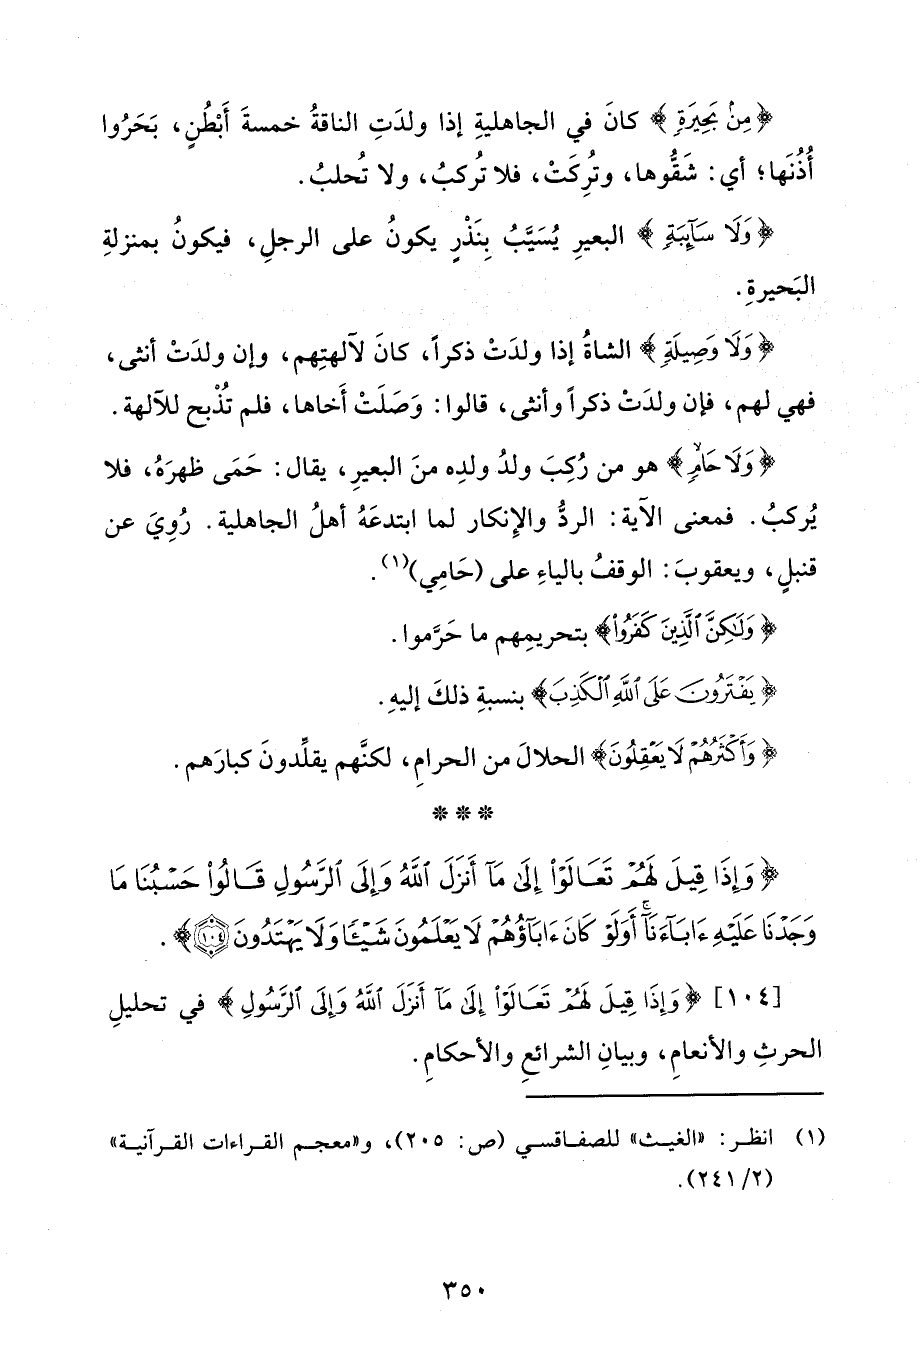 ﴿مِنْ بَحِيرَةٍ﴾ كانَ في الجاهليةِ إذا ولدَتِ الناقةُ خمسةَ أَبْطُنٍ، بَحَرُوا
أُذُنَها؛ أي: شَقُّوها، وتُرِكَتْ، فلا تُركبُ، ولا تُحلبُ.
﴿وَلَا سَآئِبَةٍ﴾ البعيرِ يُسَيَّبُ بِنَذْرٍ يكونُ على الرجلِ، فيكونُ بمنزلةِ
البَحيرةِ.
﴿وَلَا وَصِيلَةٍ﴾ الشاةُ إذا ولدَتْ ذكراً، كانَ لآلهتِهم، وإن ولدَتْ أنثى،
فهي لهم، فإن ولدَتْ ذكراً وأنثى، قالوا: وَصَلَتْ أَخاها، فلم تُذْبح للآلهة.
﴿وَلَا حَامٍۙ﴾ هو من رُكِبَ ولدُ ولدِه منَ البعيرِ، يقال: حَمَى ظهرَهُ، فلا
يُركبُ. فمعنى الآية: الردُّ والإنكار لما ابتدعَهُ أهلُ الجاهلية. رُوِيَ عن
قنبلٍ، ويعقوبَ: الوقفُ بالياءِ على (حَامِي)(١).
﴿وَلَٰكِنَّ ٱلَّذِينَ كَفَرُواْ﴾ بتحريمِهم ما حَرَّموا.
﴿يَفْتَرُونَ عَلَى ٱللَّهِ ٱلْكَذِبَ﴾ بنسبةِ ذلكَ إليهِ.
﴿وَأَكْثَرُهُمْ لَا يَعْقِلُونَ﴾ الحلالَ من الحرامِ، لكنَّهم يقلِّدونَ كبارَهم.
* * *
﴿وَإِذَا قِيلَ لَهُمْ تَعَالَوْاْ إِلَىٰ مَآ أَنزَلَ ٱللَّهُ وَإِلَى ٱلرَّسُولِ قَالُواْ حَسْبُنَا مَا
وَجَدْنَا عَلَيْهِ ءَابَآءَنَآۚ أَوَلَوْ كَانَ ءَابَآؤُهُمْ لَا يَعْلَمُونَ شَيْـًٔا وَلَا يَهْتَدُونَ ١٠٤﴾.
[١٠٤] ﴿وَإِذَا قِيلَ لَهُمْ تَعَالَوْاْ إِلَىٰ مَآ أَنزَلَ ٱللَّهُ وَإِلَى ٱلرَّسُولِ﴾ في تحليلِ
الحرثِ والأنعامِ، وبيانِ الشرائعِ والأحكامِ.
(١) انظر: «الغيث» للصفاقسي (ص: ٢٠٥)، و«معجم القراءات القرآنية»
(٢/٢٤١).
٣٥٠